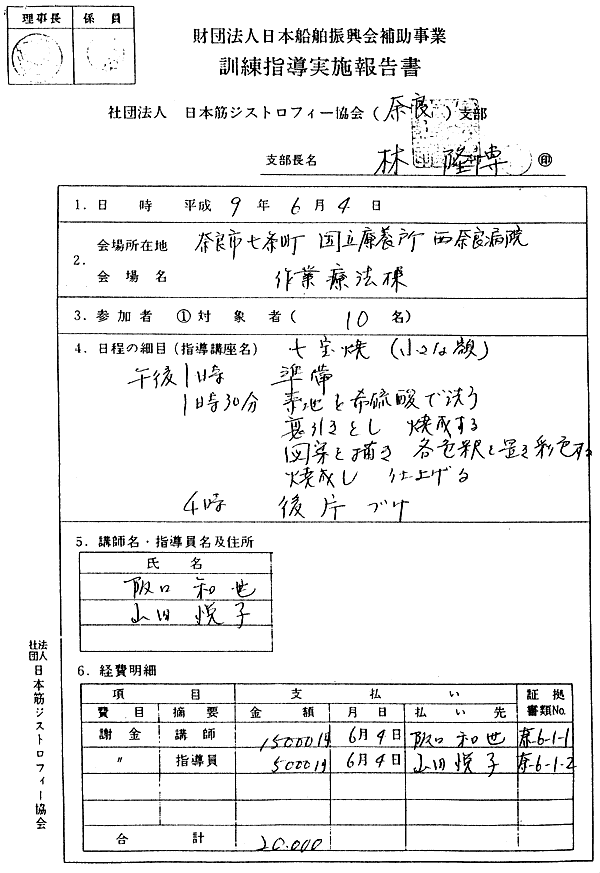 理事長 係員
財団法人日本船舶振興会補助事業
訓練指導実施報告書
社団法人 日本筋ジストロフィー協会(奈良)支部
支部長名 林 隆博 ㊞
1. 日 時 平成 9 年 6 月 4 日
2. 会場所在地 奈良市七条町 国立療養所 西奈良病院
会場名 作業療法棟
3. 参加者 ①対象者( 10 名)
4. 日程の細目(指導講座名) 七宝焼 (小さな額)
午後1時 準備
1時30分 素地を希硫酸で洗う
裏引きをし 焼成する
図案を描き 各色釉を置き彩色する
焼成し 仕上げる
4時 後片づけ
5. 講師名・指導員名及住所
氏名
阪口 和世
山田 悦子
6. 経費明細
項目 支払い 証拠書類No.
費目 摘要 金額 月日 払い先
謝金 講師 15000円 6月4日 阪口 和世 奈6-1-1
〃 指導員 5000円 6月4日 山田 悦子 奈-6-1-2
合計 20.000
社団法人 日本筋ジストロフィー協会